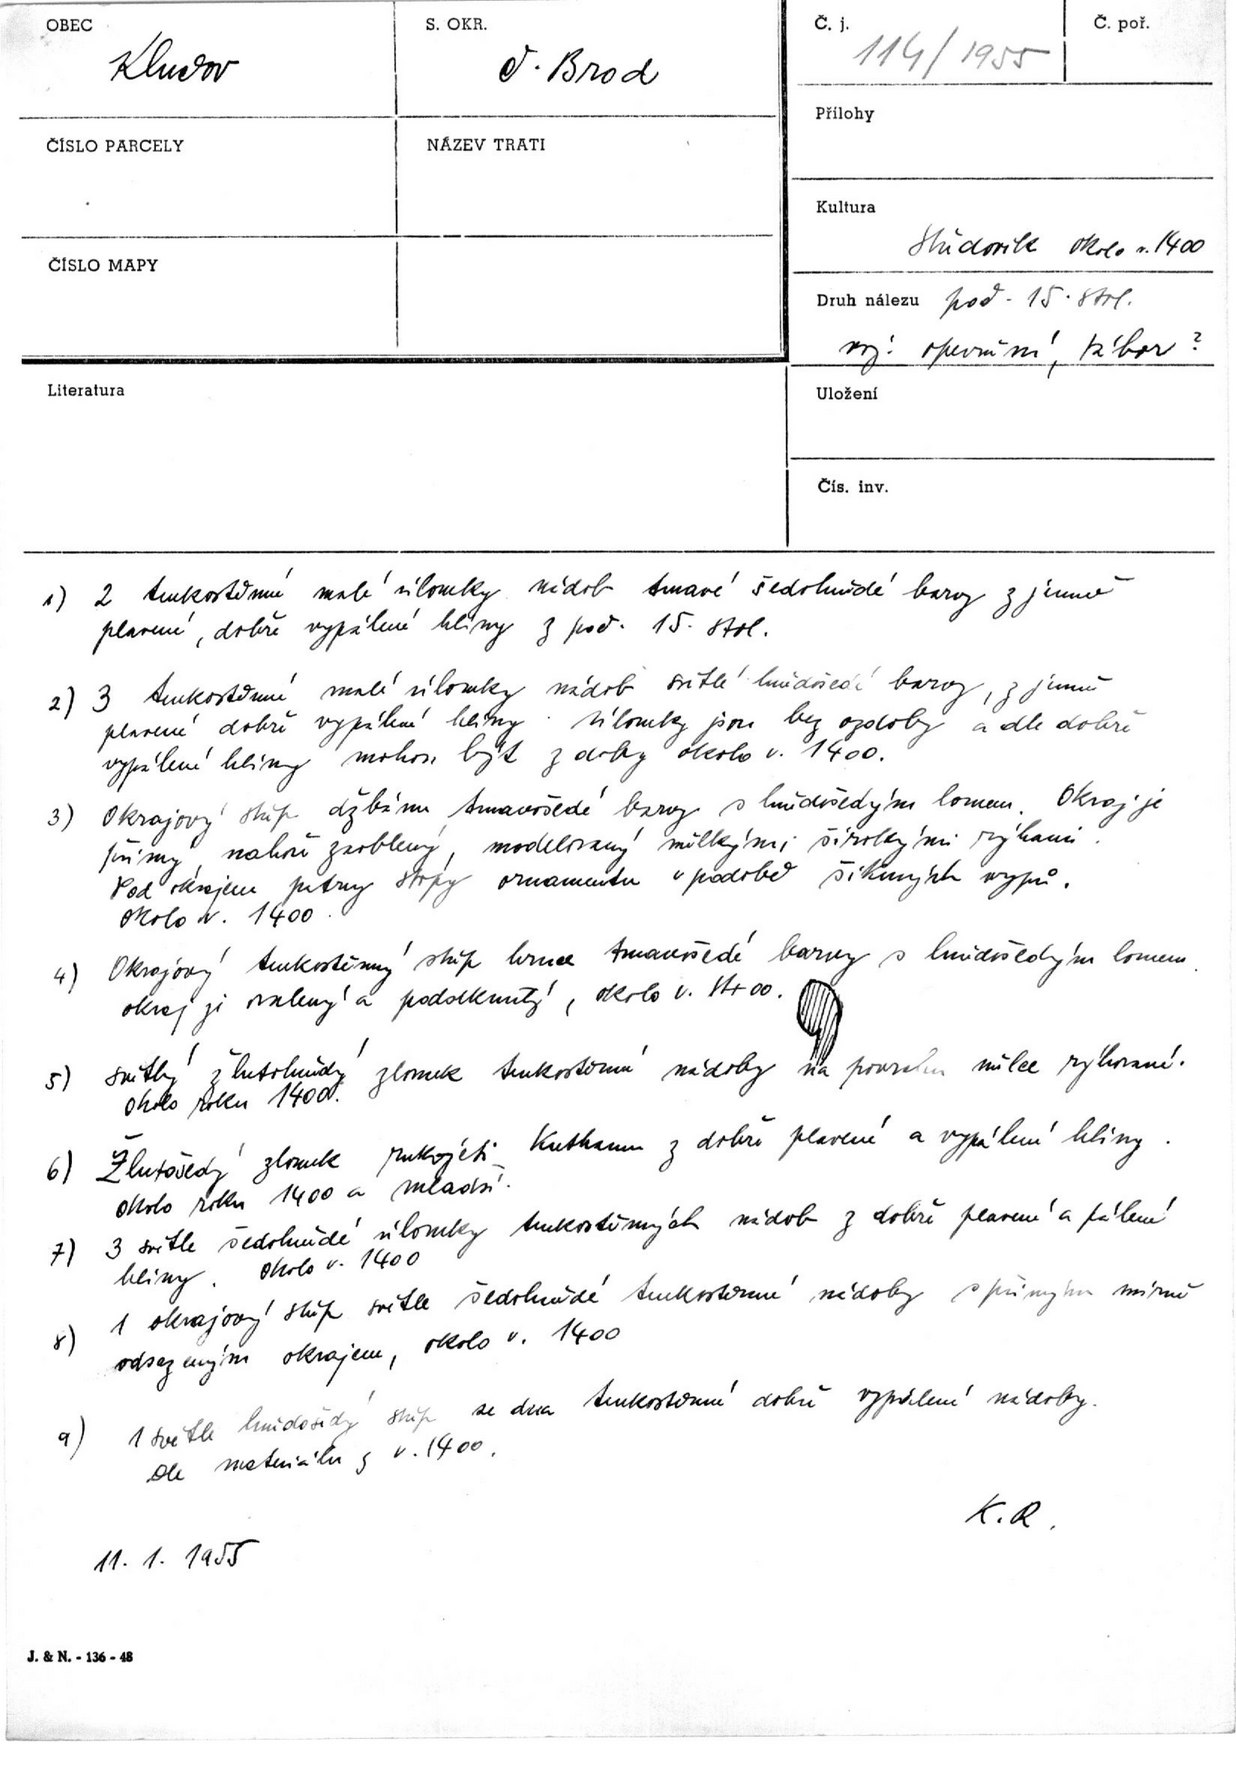 OBEC
Kludov
S. OKR.
Č. Brod
Č. j.
114/1955
Č. poř.
ČÍSLO PARCELY
NÁZEV TRATI
Přílohy
Kultura
Středověk okolo r. 1400
ČÍSLO MAPY
Druh nálezu poč. 15. stol.
voj. opevnění, tábor?
Literatura
Uložení
Čís. inv.
1) 2 tenkostěnné malé úlomky nádob tmavé šedohnědé barvy z jemně
plavené, dobře vypálené hlíny z poč. 15. stol.
2) 3 tenkostěnné malé úlomky nádob světlé hnědošedé barvy, z jemně
plavené dobře vypálené hlíny. Úlomky jsou bez ozdoby a dle dobře
vypálené hlíny mohou být z doby okolo r. 1400.
3) Okrajový střep džbánu tmavošedé barvy s hnědošedým lomem. Okraj je
přímý, nahoře zaoblený, modelovaný mělkými širokými rýhami.
Pod okrajem patrny stopy ornamentu v podobě šikmých vrypů.
okolo r. 1400.
4) Okrajový tenkostěnný střep hrnce tmavošedé barvy s hnědošedým lomem.
okraj je ovalený a podseknutý, okolo r. 1400.
5) světlý žlutohnědý zlomek tenkostěnné nádoby na povrchu mělce rýhované.
okolo roku 1400.
6) Žlutošedý zlomek rukojeti kuthanu z dobře plavené a vypálené hlíny.
okolo roku 1400 a mladší.
7) 3 světle šedohnědé úlomky tenkostěnných nádob z dobře plavené a pálené
hlíny. okolo r. 1400
8) 1 okrajový střep světle šedohnědé tenkostěnné nádoby s přímým mírně
odsazeným okrajem, okolo r. 1400
9) 1 světle hnědošedý střep ze dna tenkostěnné dobře vypálené nádoby.
Dle materiálu z r. 1400.
K. R.
11. 1. 1955
J. & N. - 136 - 48